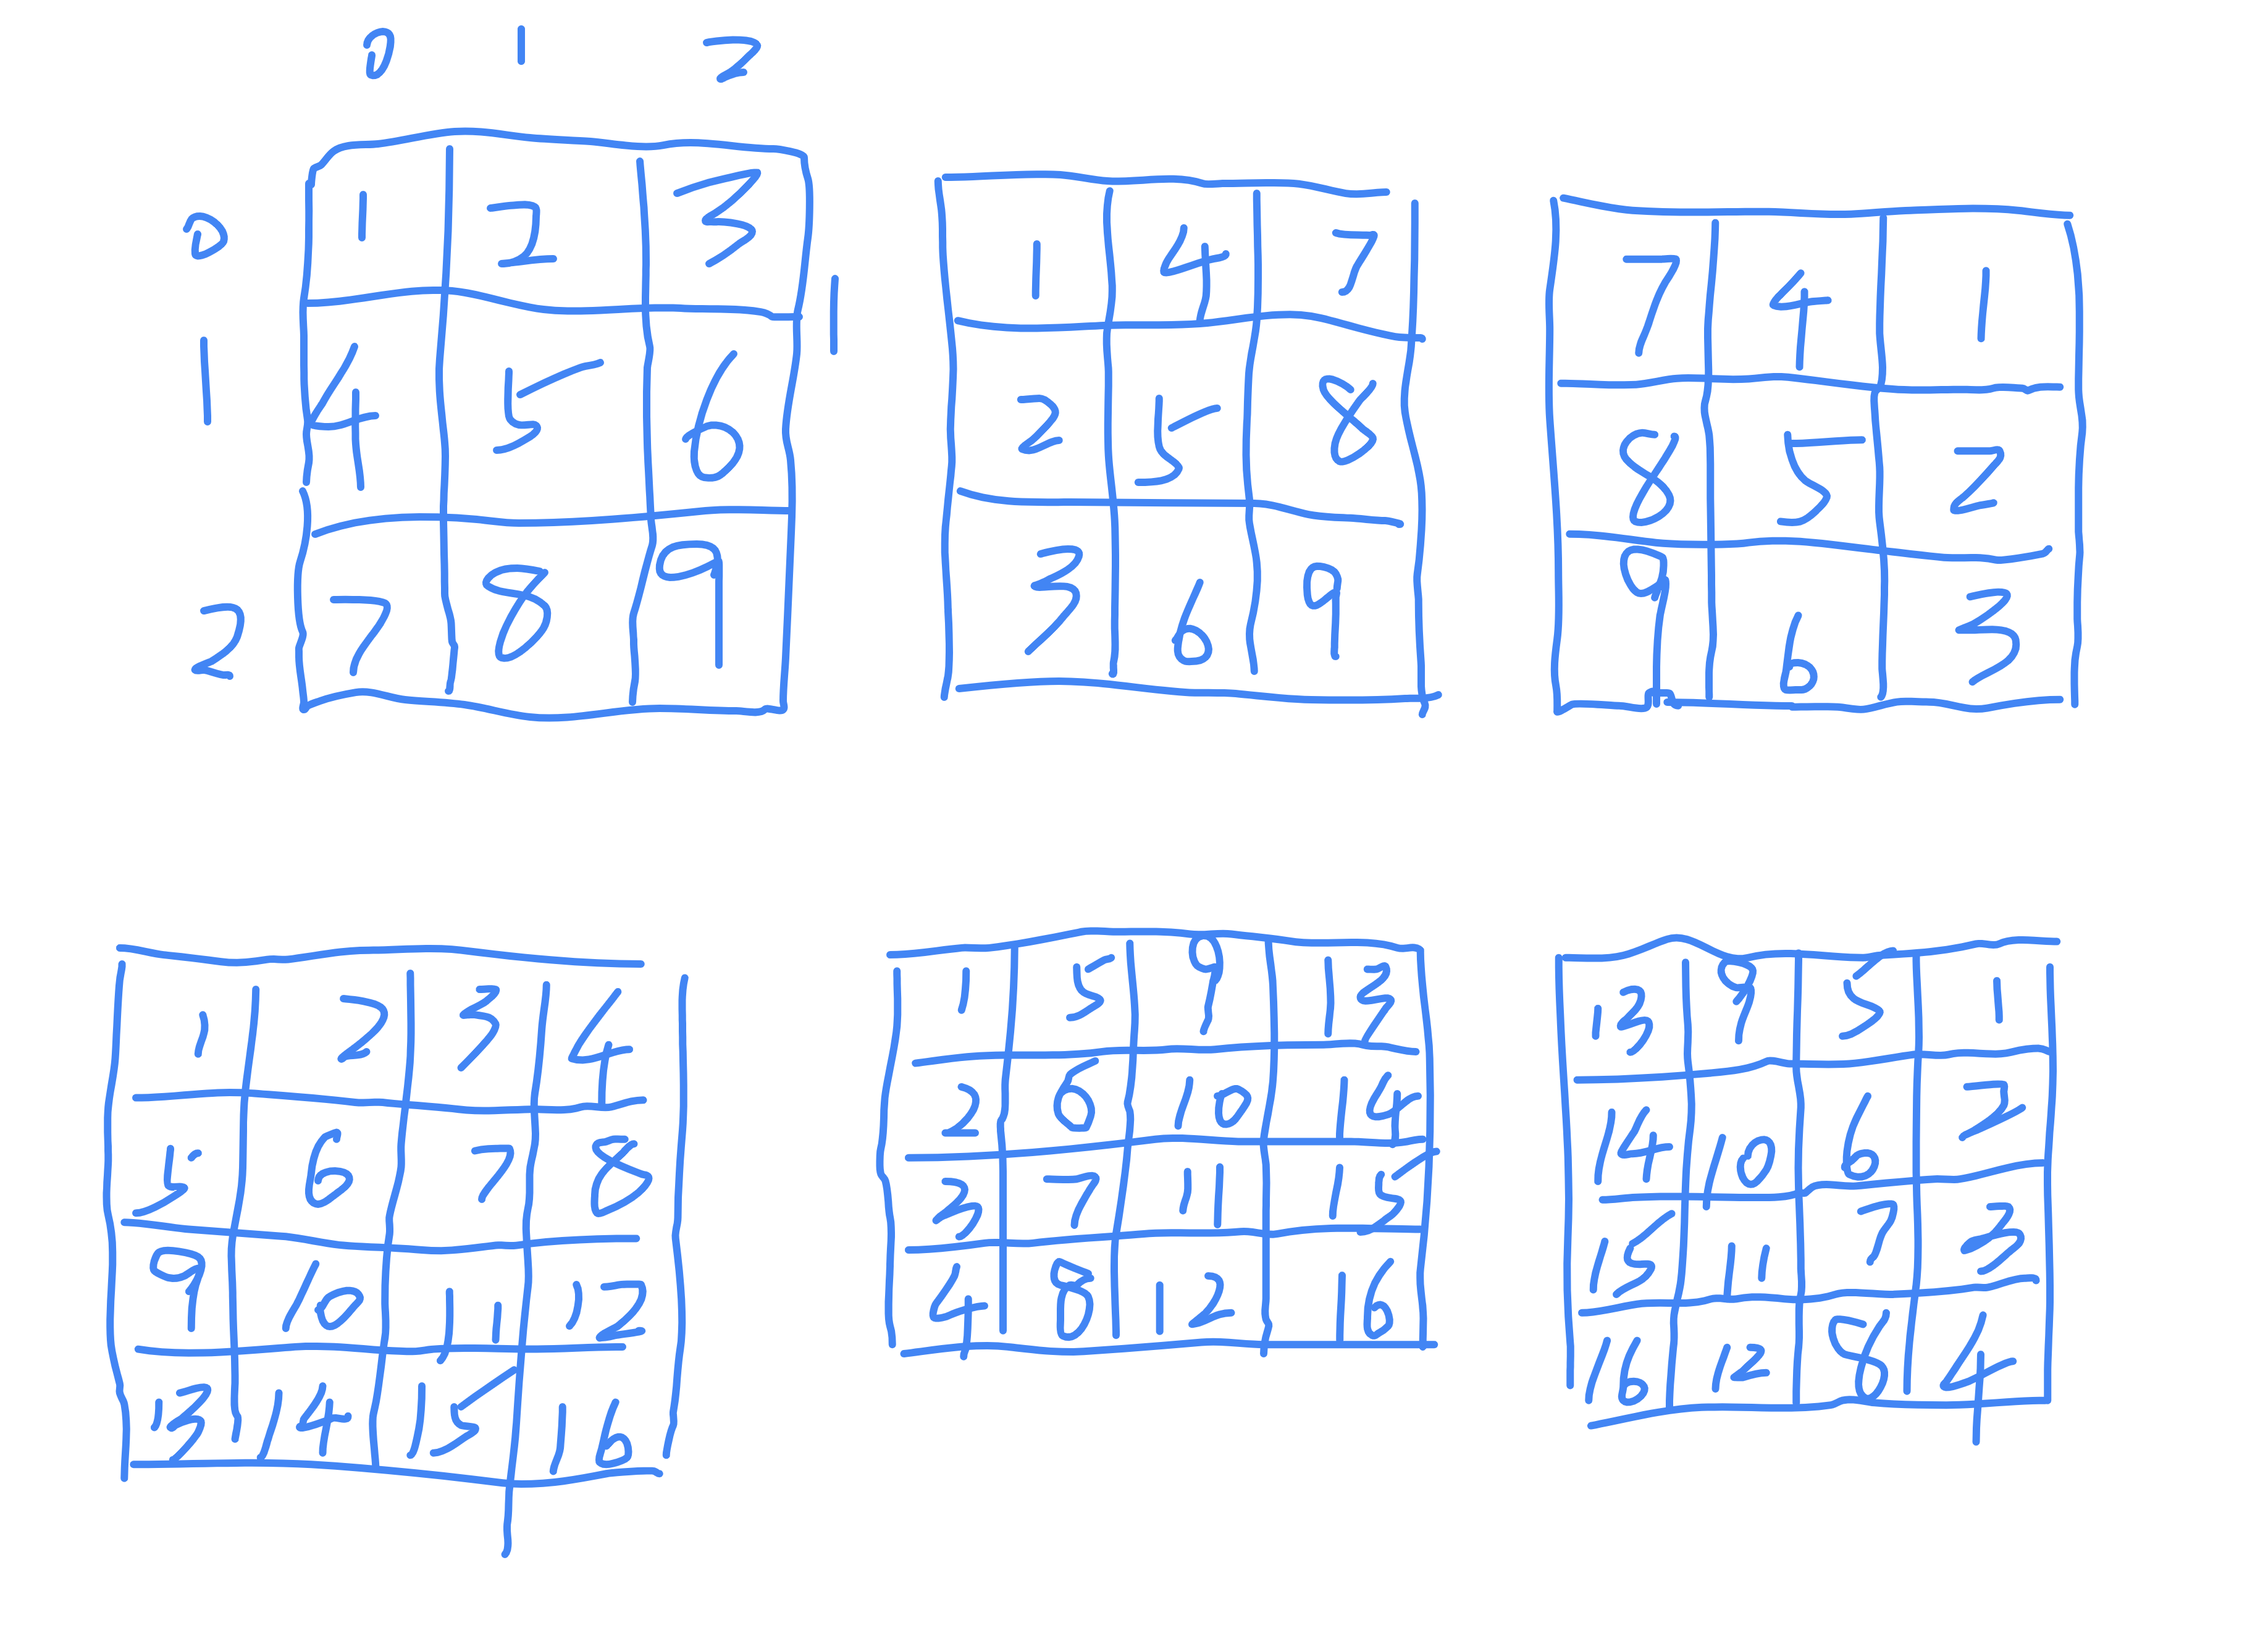 0 1 2
0 1 2 3
1 4 5 6
2 7 8 9
1 4 7
2 5 8
3 6 9
7 4 1
8 5 2
9 6 3
1 2 3 4
5 6 7 8
9 10 11 12
13 14 15 16
1 5 9 13
2 6 10 14
3 7 11 15
4 8 12 16
13 9 5 1
14 10 6 2
15 11 7 3
16 12 8 4